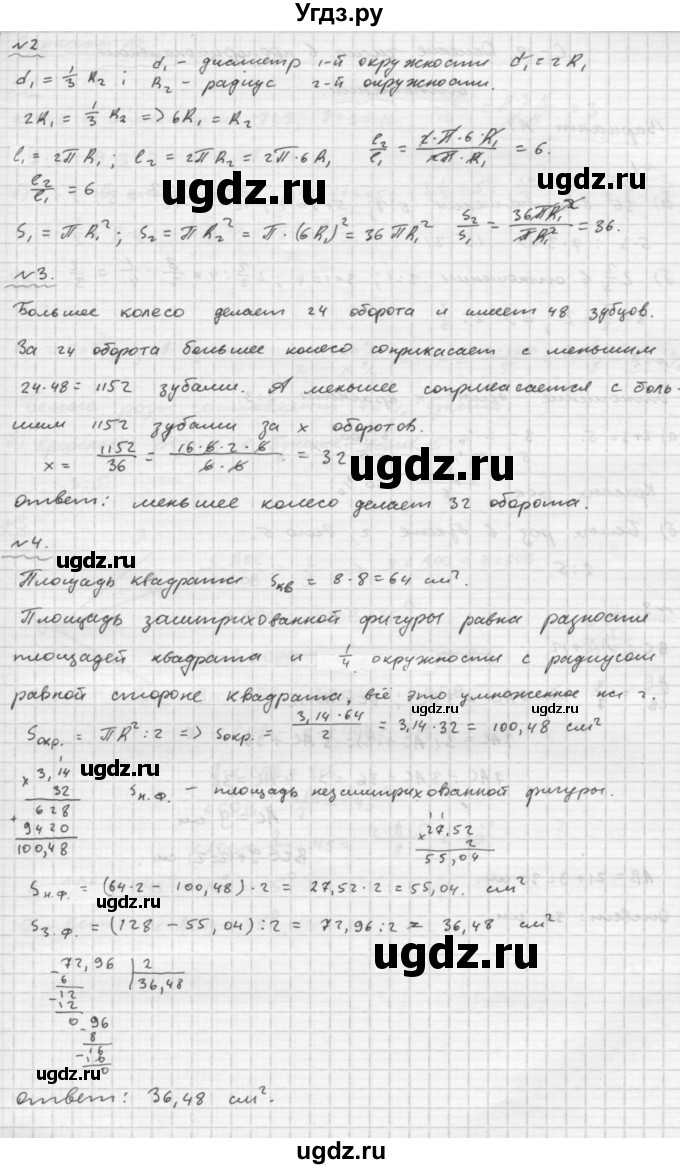 Угдз.ру
№2
d₁ = 1/3 R₂ ; d₁ – диаметр 1-й окружности d₁ = 2R₁
R₂ – радиус 2-й окружности.
2R₁ = 1/3 R₂ => 6R₁ = R₂
l₁ = 2πR₁; l₂ = 2πR₂ = 2π·6R₁ l₂/l₁ = 2·π·6·R₁/2π·R₁ = 6.
l₂/l₁ = 6
ugdz.ru
ugdz.ru
S₁ = πR₁²; S₂ = πR₂² = π·(6R₁)² = 36πR₁² S₂/S₁ = 36πR₁²/πR₁² = 36.
№3.
Большее колесо делает 24 оборота и имеет 48 зубцов.
За 24 оборота большее колесо соприкасает с меньшим
24·48 = 1152 зубами. А меньшее соприкасается с боль-
шим 1152 зубами за x оборотов.
x = 1152/36 = 16·6·2·6/6·6 = 32
ugdz.ru
ответ: меньшее колесо делает 32 оборота.
№4.
ugdz.ru
Площадь квадрата Sкв = 8·8 = 64 см².
Площадь заштрихованной фигуры равна разности
площадей квадрата и 1/4 окружности с радиусом
равной стороне квадрата, всё это умноженное на 2.
ugdz.ru
ugdz.ru
Sокр. = πR²:2 => Sокр. = 3,14·64/2 = 3,14·32 = 100,48 см²
ugdz.ru
× 3,14
32
Sн.ф. – площадь незаштрихованной фигуры.
+ 628
9420
100,48
× 27,52
2
55,04
Sн.ф. = (64·2 – 100,48)·2 = 27,52·2 = 55,04. см²
ugdz.ru
Sз.ф. = (128 – 55,04):2 = 72,96:2 = 36,48 см²
ugdz.ru
- 72,96 | 2
6 | 36,48
- 12
12
0 - 96
8
- 16
16
0
ugdz.ru
ответ: 36,48 см².
ugdz.ru
ugdz.ru